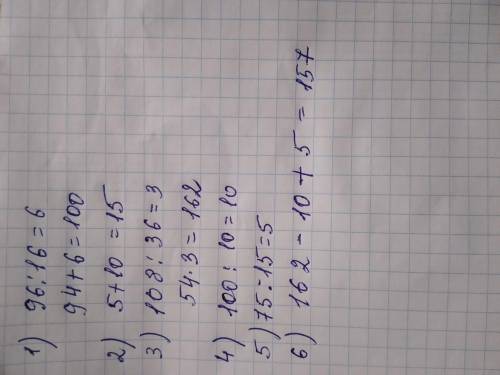 1) 96:16=6
94+6=100
2) 5+10=15
3) 108:36=3
54·3=162
4) 100:10=10
5) 75:15=5
6) 162-10+5=157